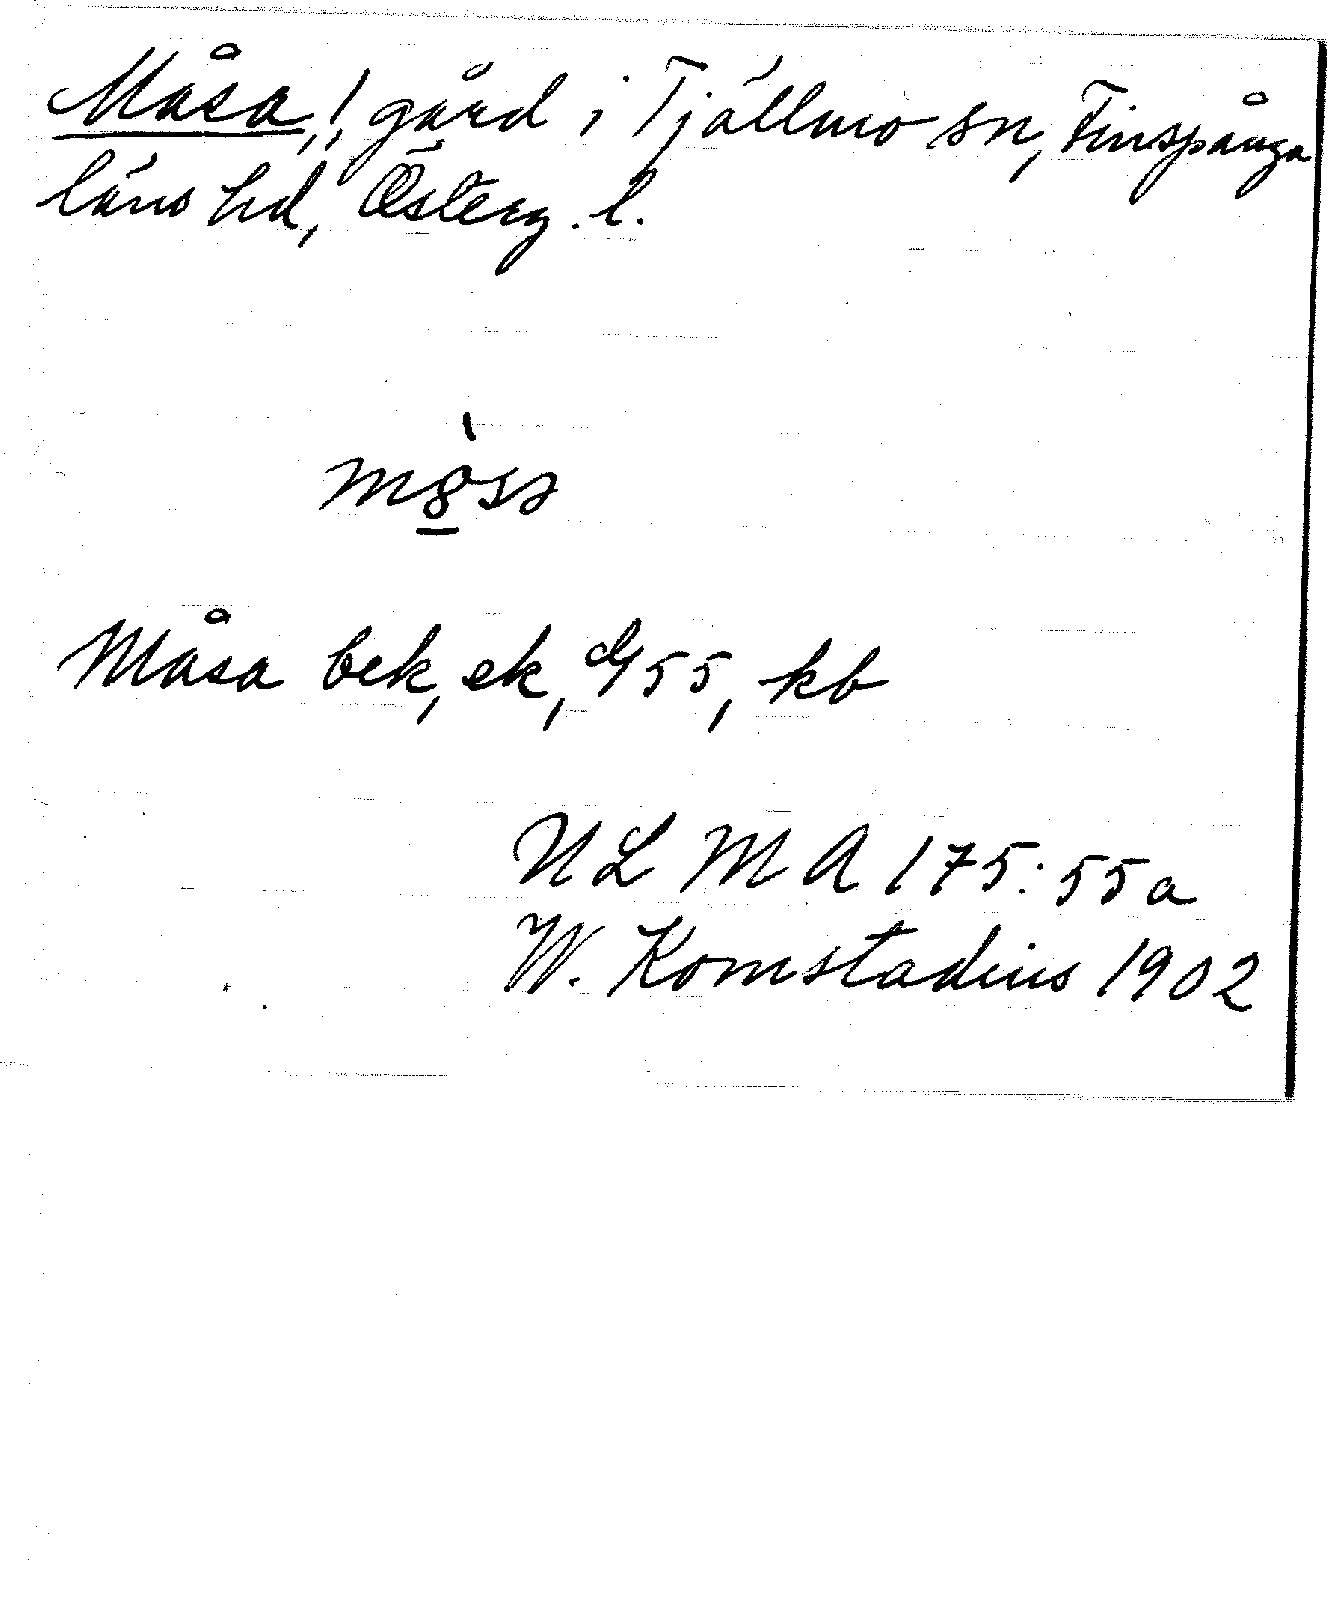 Måsa,! gård i Tjällmo sn, Finspånga
läns hd, Österg. l.
Måsa bek, ek, df 55, kb
ULMA 175:55a
W. Komstadius 1902